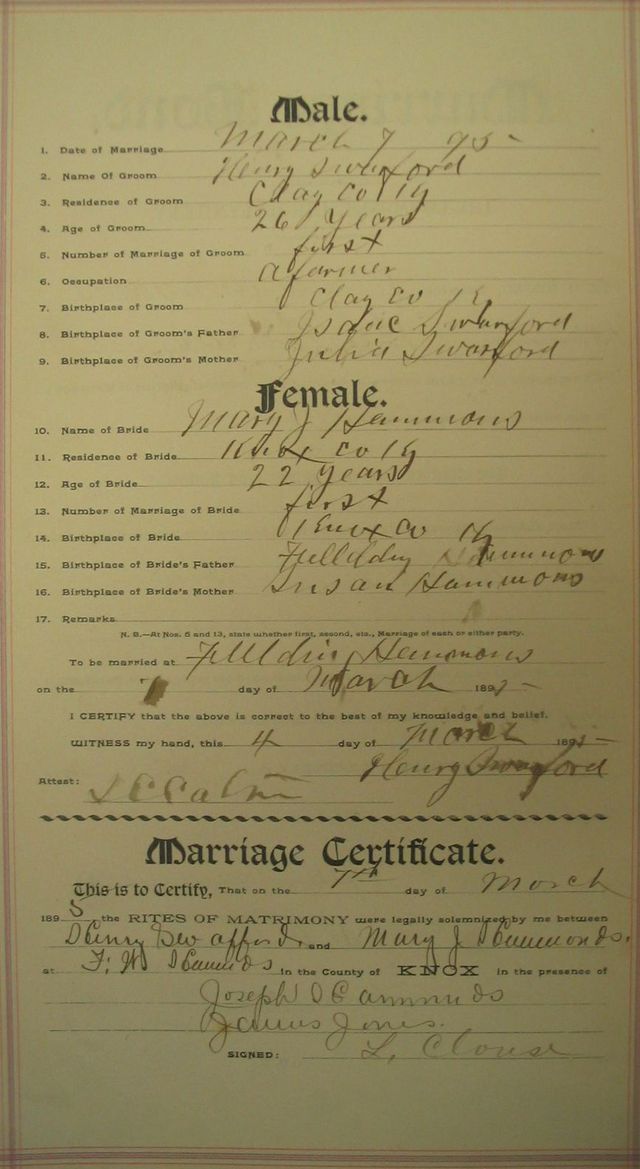 Male.
1. Date of Marriage March 7 95-
2. Name Of Groom Henry Swafford
3. Residence of Groom Clay Co Ky
4. Age of Groom 26 years
5. Number of Marriage of Groom first
6. Occupation a farmer
7. Birthplace of Groom Clay Co K
8. Birthplace of Groom's Father Isaac Swafford
9. Birthplace of Groom's Mother Julia Swafford
Female.
10. Name of Bride Mary J Hammons
11. Residence of Bride Knox Co Ky
12. Age of Bride 22 years
13. Number of Marriage of Bride first
14. Birthplace of Bride Knox Co Ky
15. Birthplace of Bride's Father Hammons
16. Birthplace of Bride's Mother Susan Hammons
17. Remarks
N. B.—At Nos. 5 and 13, state whether first, second, etc., Marriage of each or either party.
To be married at Hammons
on the 7 day of March 1895-
I CERTIFY that the above is correct to the best of my knowledge and belief.
WITNESS my hand, this 4 day of March 1895-
Henry Swafford
Attest:
Marriage Certificate.
This is to Certify, That on the 7th day of March
1895, the RITES OF MATRIMONY were legally solemnized by me between
Henry Swafford and Mary J Hammonds.
at F. W. in the County of KNOX in the presence of
Joseph Hammonds
James Jones.
SIGNED: L. Clouse